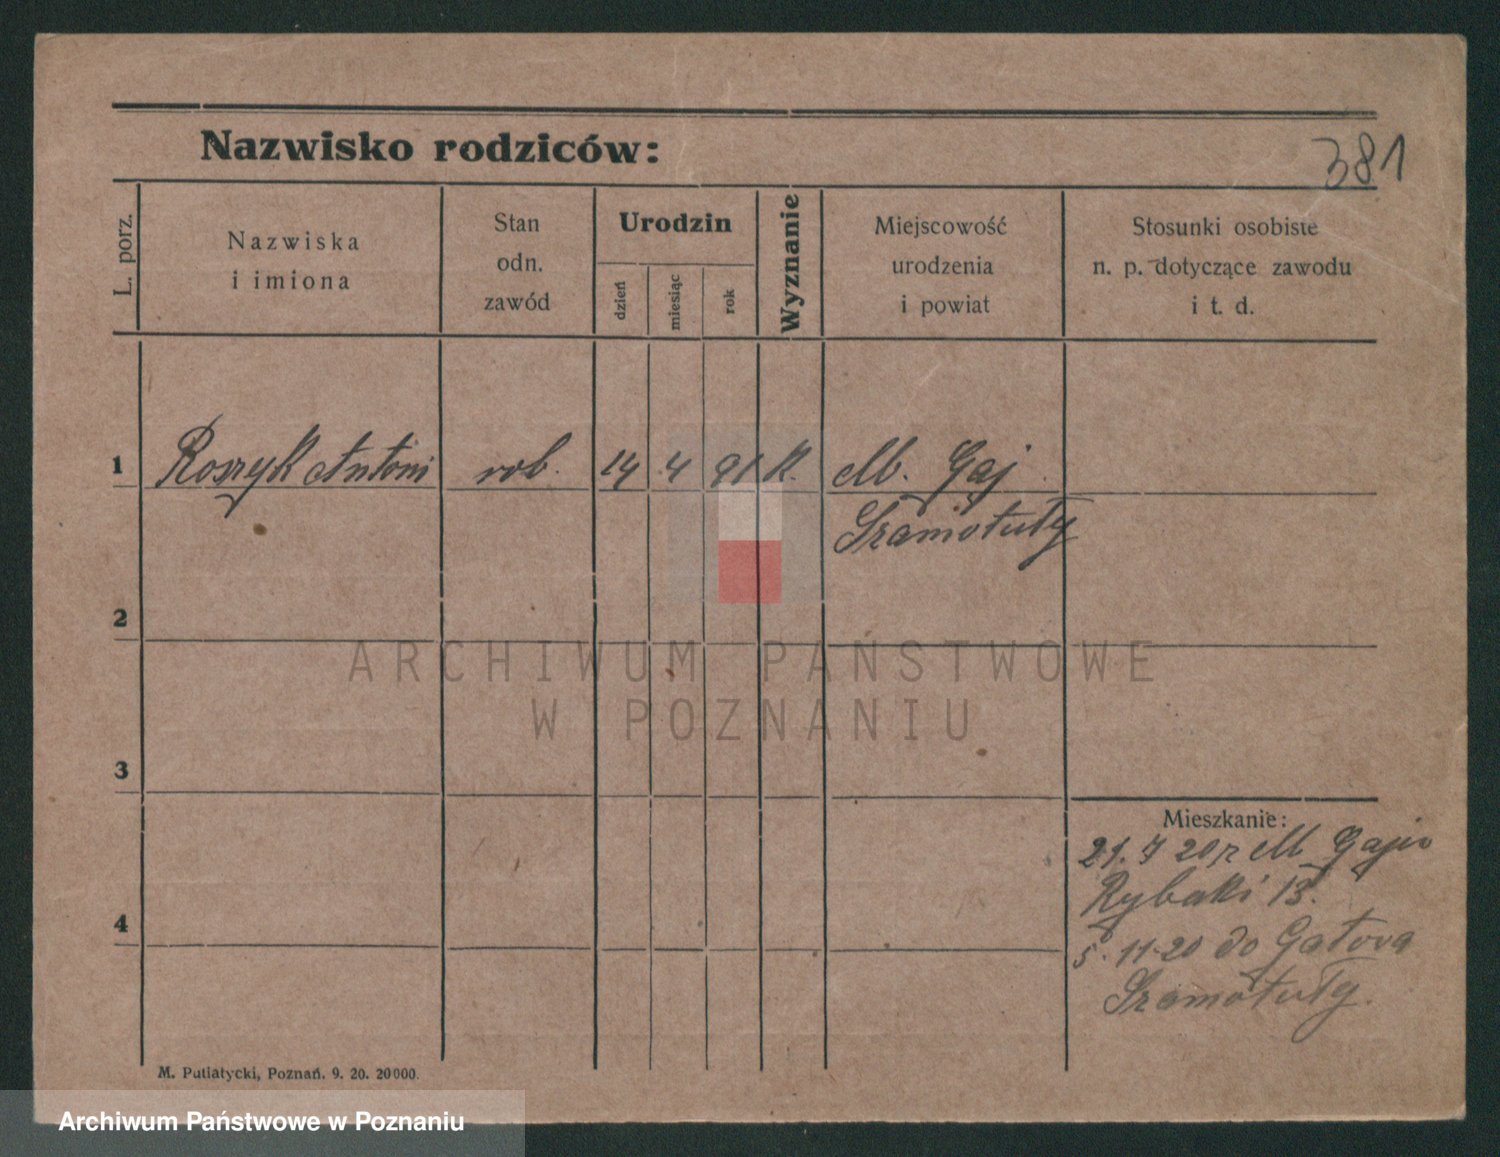 Nazwisko rodziców:
381
L. porz.
Nazwiska
i imiona
Stan
odn.
zawód
Urodzin
dzień
miesiąc
rok
Wyznanie
Miejscowość
urodzenia
i powiat
Stosunki osobiste
n. p. dotyczące zawodu
i t. d.
1 Roszyk Antoni rob. 14 4 91 K. M. Gaj
Szamotuły
2
3
4
Mieszkanie:
21. 7 20 z M Gaju
Rybaki 13.
5. 11-20 do Gałowa
Szamotuły.
M. Putiatycki, Poznań. 9. 20. 20000.
ARCHIWUM PAŃSTWOWE
W POZNANIU
Archiwum Państwowe w Poznaniu